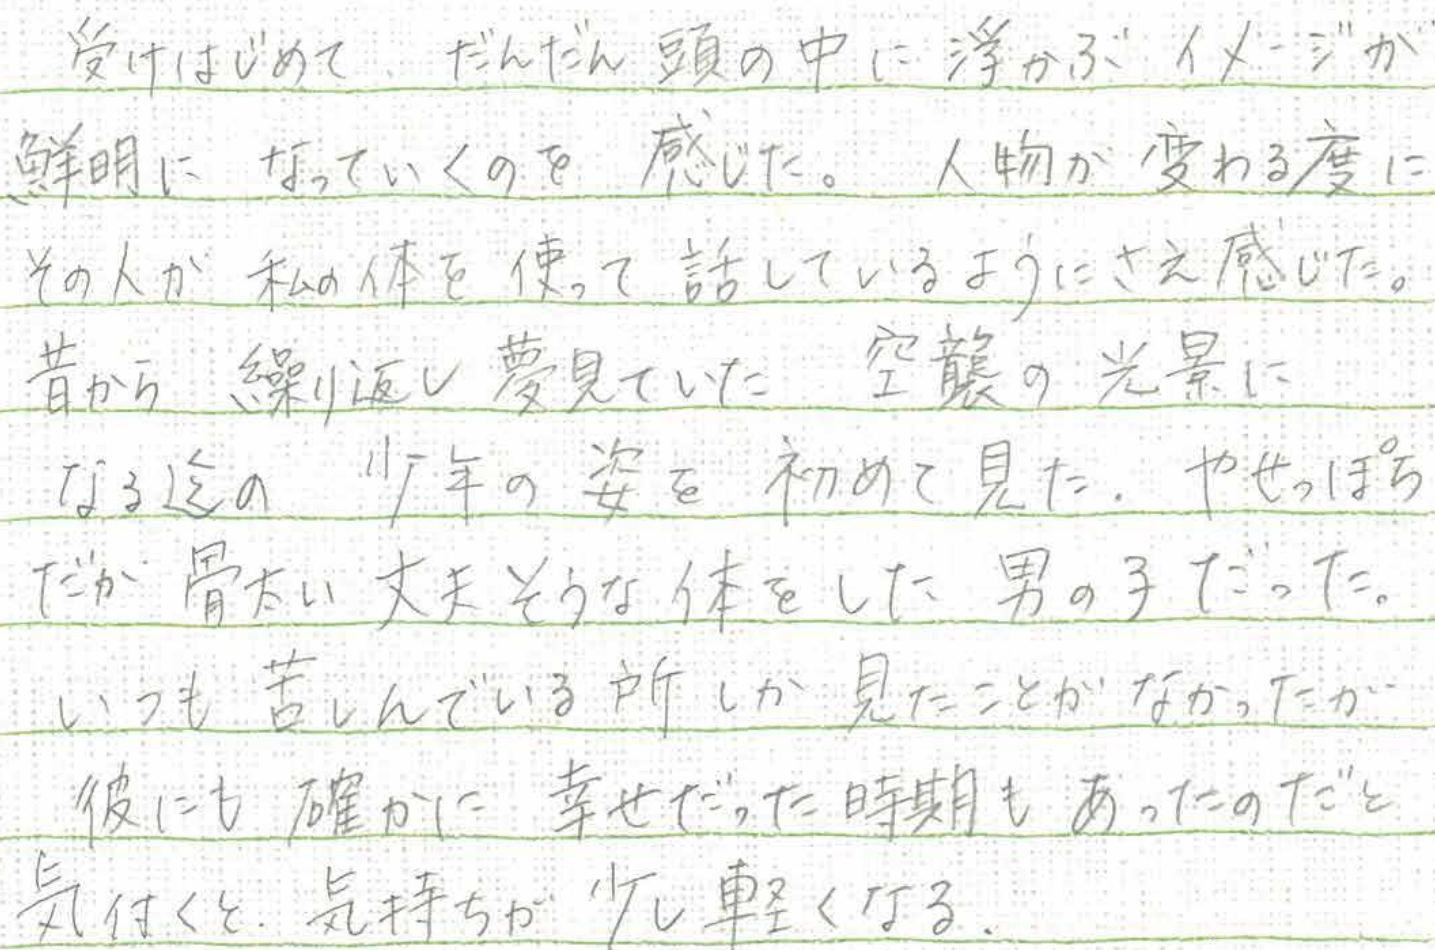 受けはじめて、だんだん頭の中に浮かぶイメージが
鮮明になっていくのを感じた。人物が変わる度に
その人が私の体を使って話しているようにさえ感じた。
昔から繰り返し夢見ていた空襲の光景に
なる迄の少年の姿を初めて見た。やせっぽち
だが骨太い丈夫そうな体をした男の子だった。
いつも苦しんでいる所しか見たことがなかったが
彼にも確かに幸せだった時期もあったのだと
気付くと、気持ちが少し軽くなる。